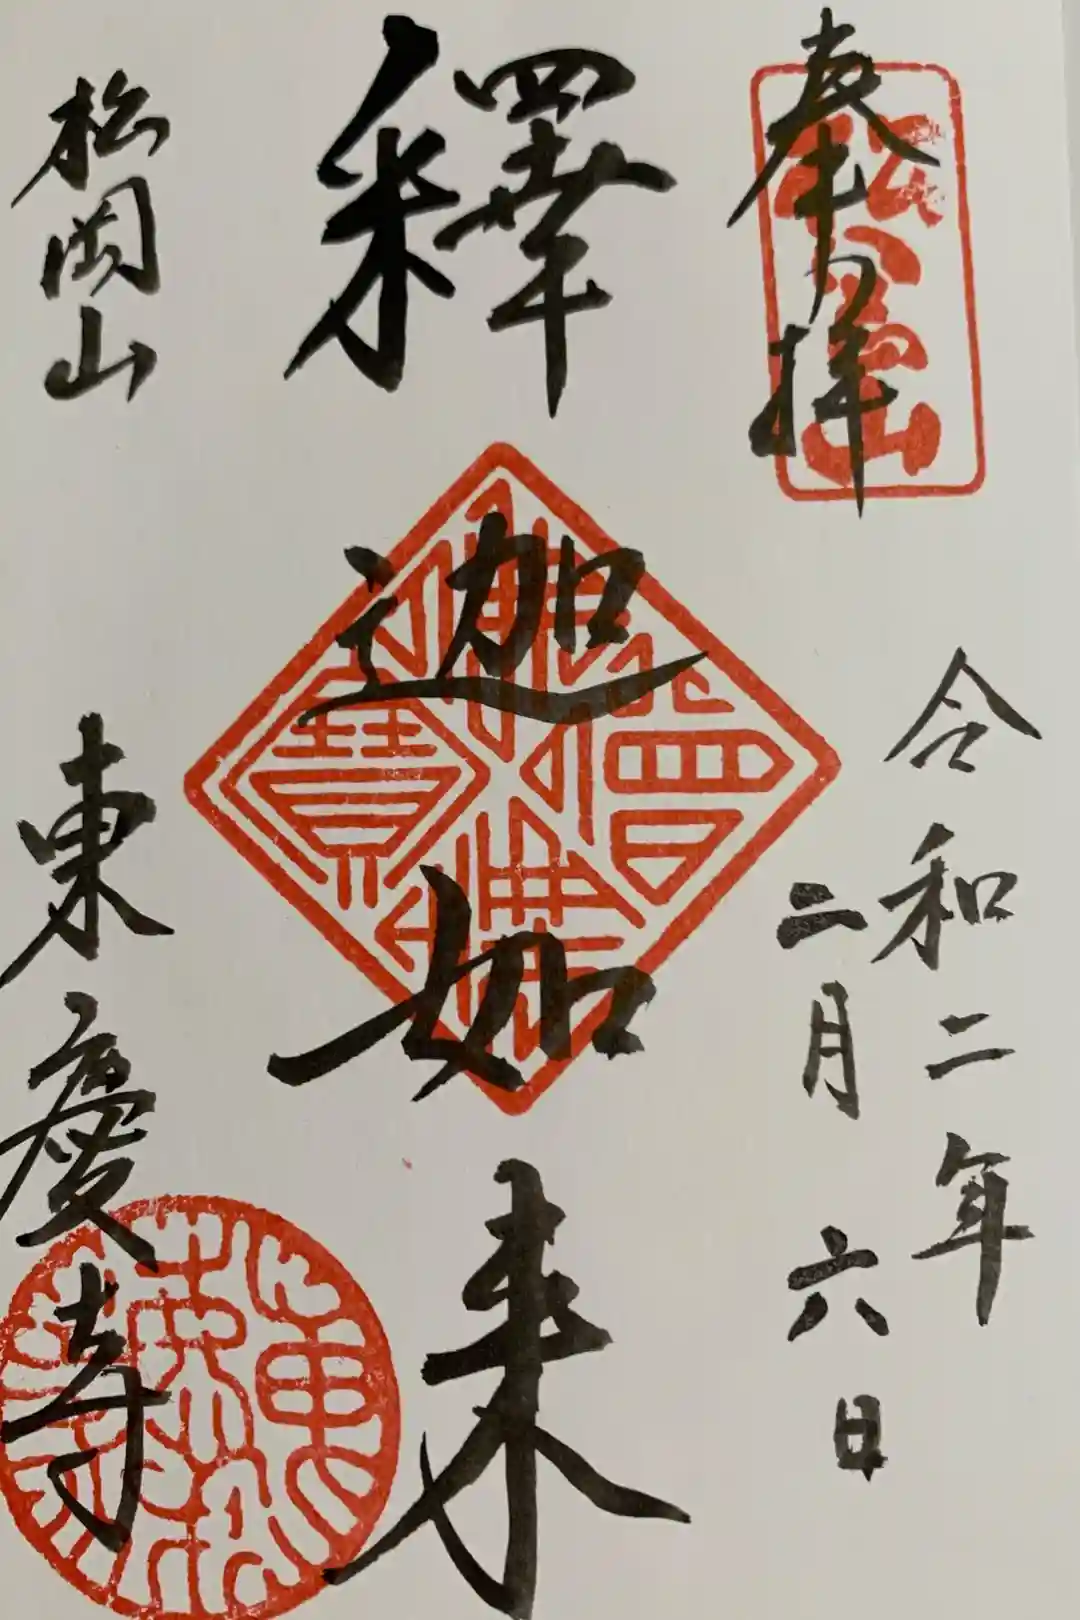 奉拝
松岡山
令和二年
二月六日
釋迦如来
松岡山
東慶寺